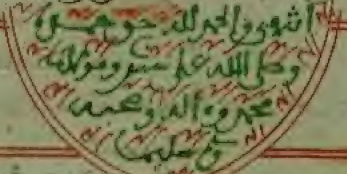 انتهى والحمد لله حق حمده
وصلى الله على سيدنا ومولانا
محمد وءاله وصحبه
وسلم تسليما